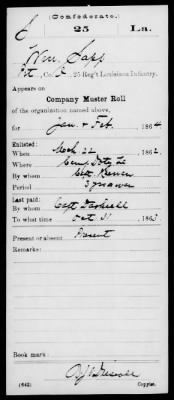 (Confederate.)
25 La.
Wm. Sapp
Pt, Co. 25 Reg't Louisiana Infantry.
Appears on
Company Muster Roll
of the organization named above,
for Jan & Feb, 1864
Enlisted:
When 22, 1862.
Where Camp La
By whom
Period 3 yrs or war
Last paid:
By whom Capt
To what time Oct 31, 1863
Present or absent Present
Remarks:
Book mark:
(642) Copyist.